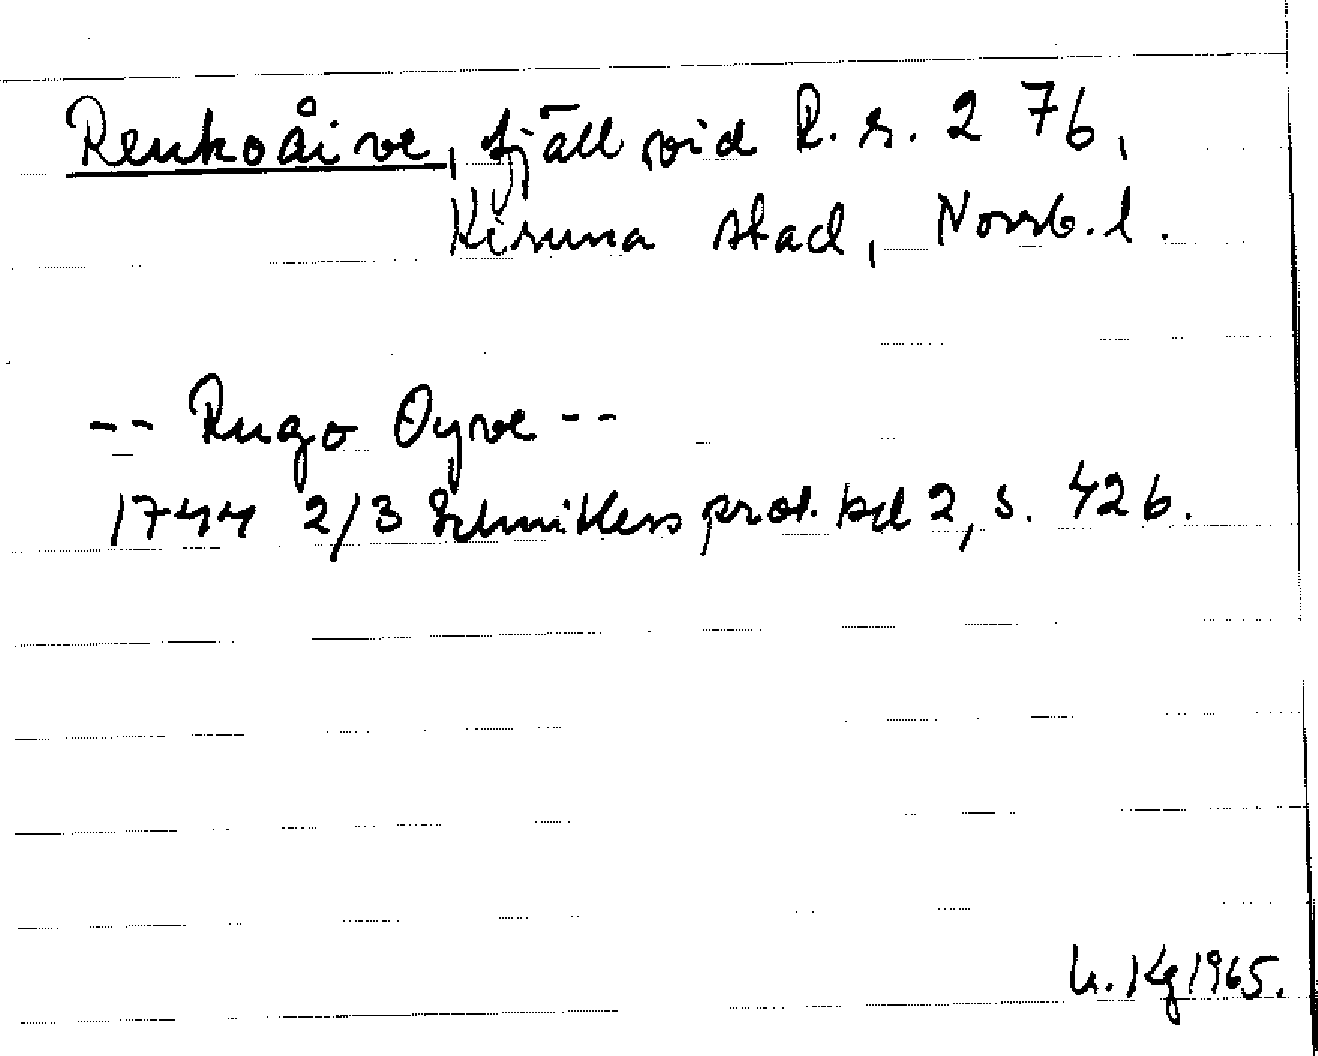 Reukoåive, fjäll vid R. r. 276,
Kiruna stad, Norrb. l.
-- Rugo Oyve --
1744 2/3 Schnitlers prot. bd 2, s. 426.
U. Kg 1965.